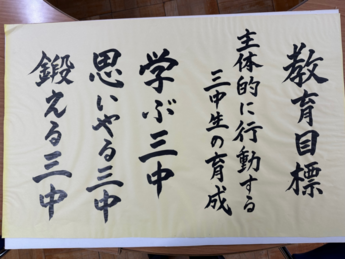 教育目標
主体的に行動する
三中生の育成
学ぶ三中
思いやる三中
鍛える三中